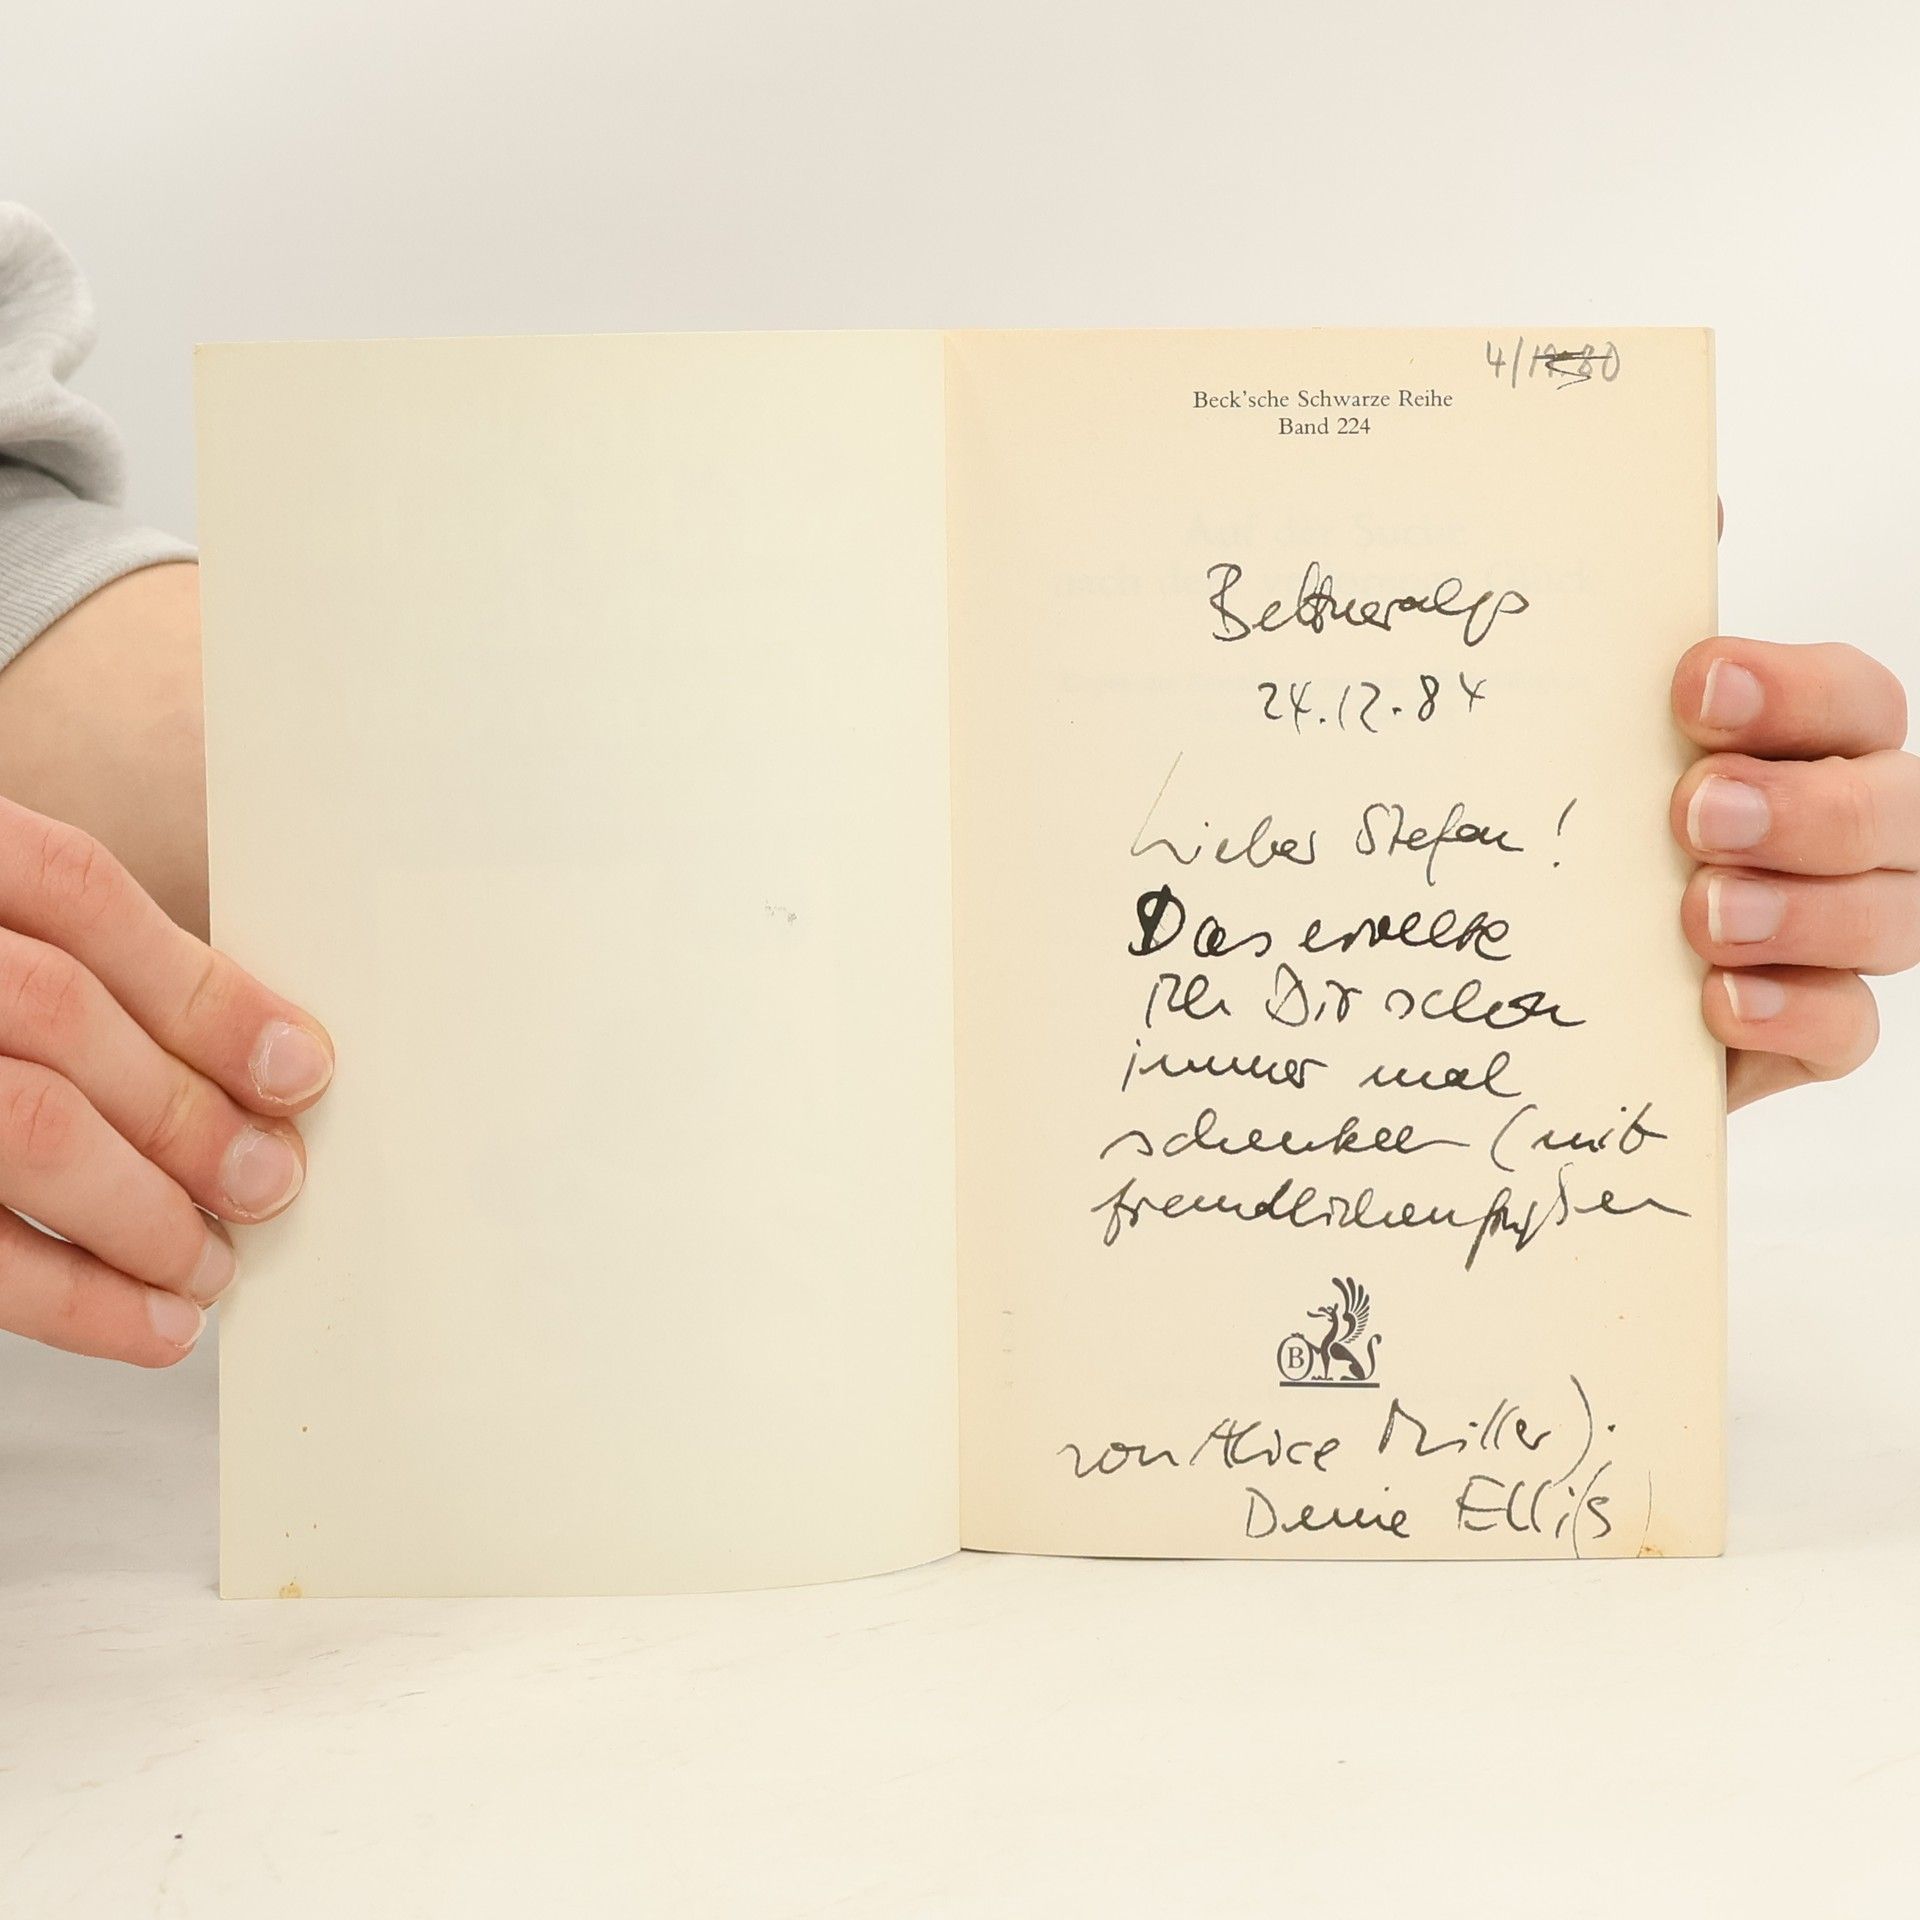 4/19.80
Beck'sche Schwarze Reihe
Band 224
Bettmeralp
24.12.84
Lieber Stefan!
Das wollte
ich Dir schon
immer mal
schenken (mit
freundlichen Grüßen
B
von Alice Miller).
Deine Elli